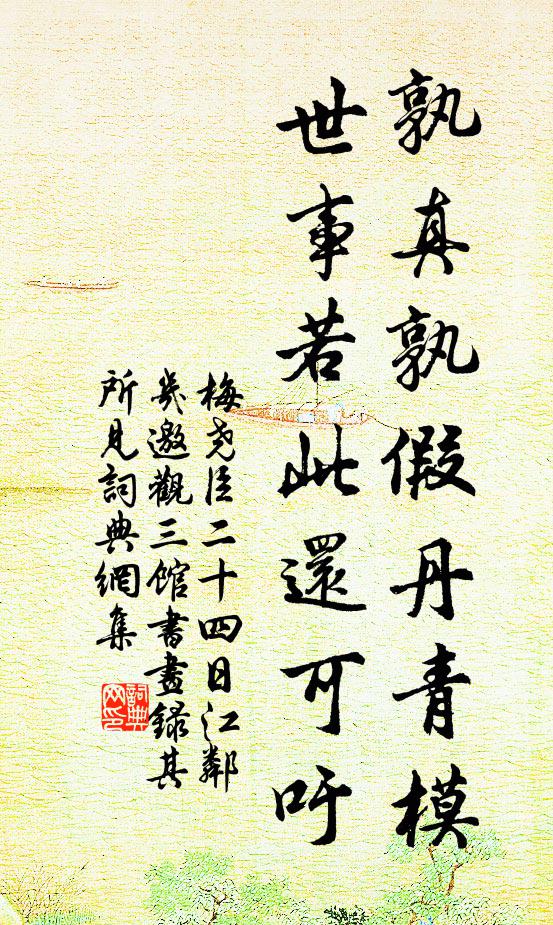 孰真孰假丹青模
世事若此還可吁
梅堯臣二十四日江鄰
幾邀觀三館書畫錄其
所見詞典網集
詞典
网印